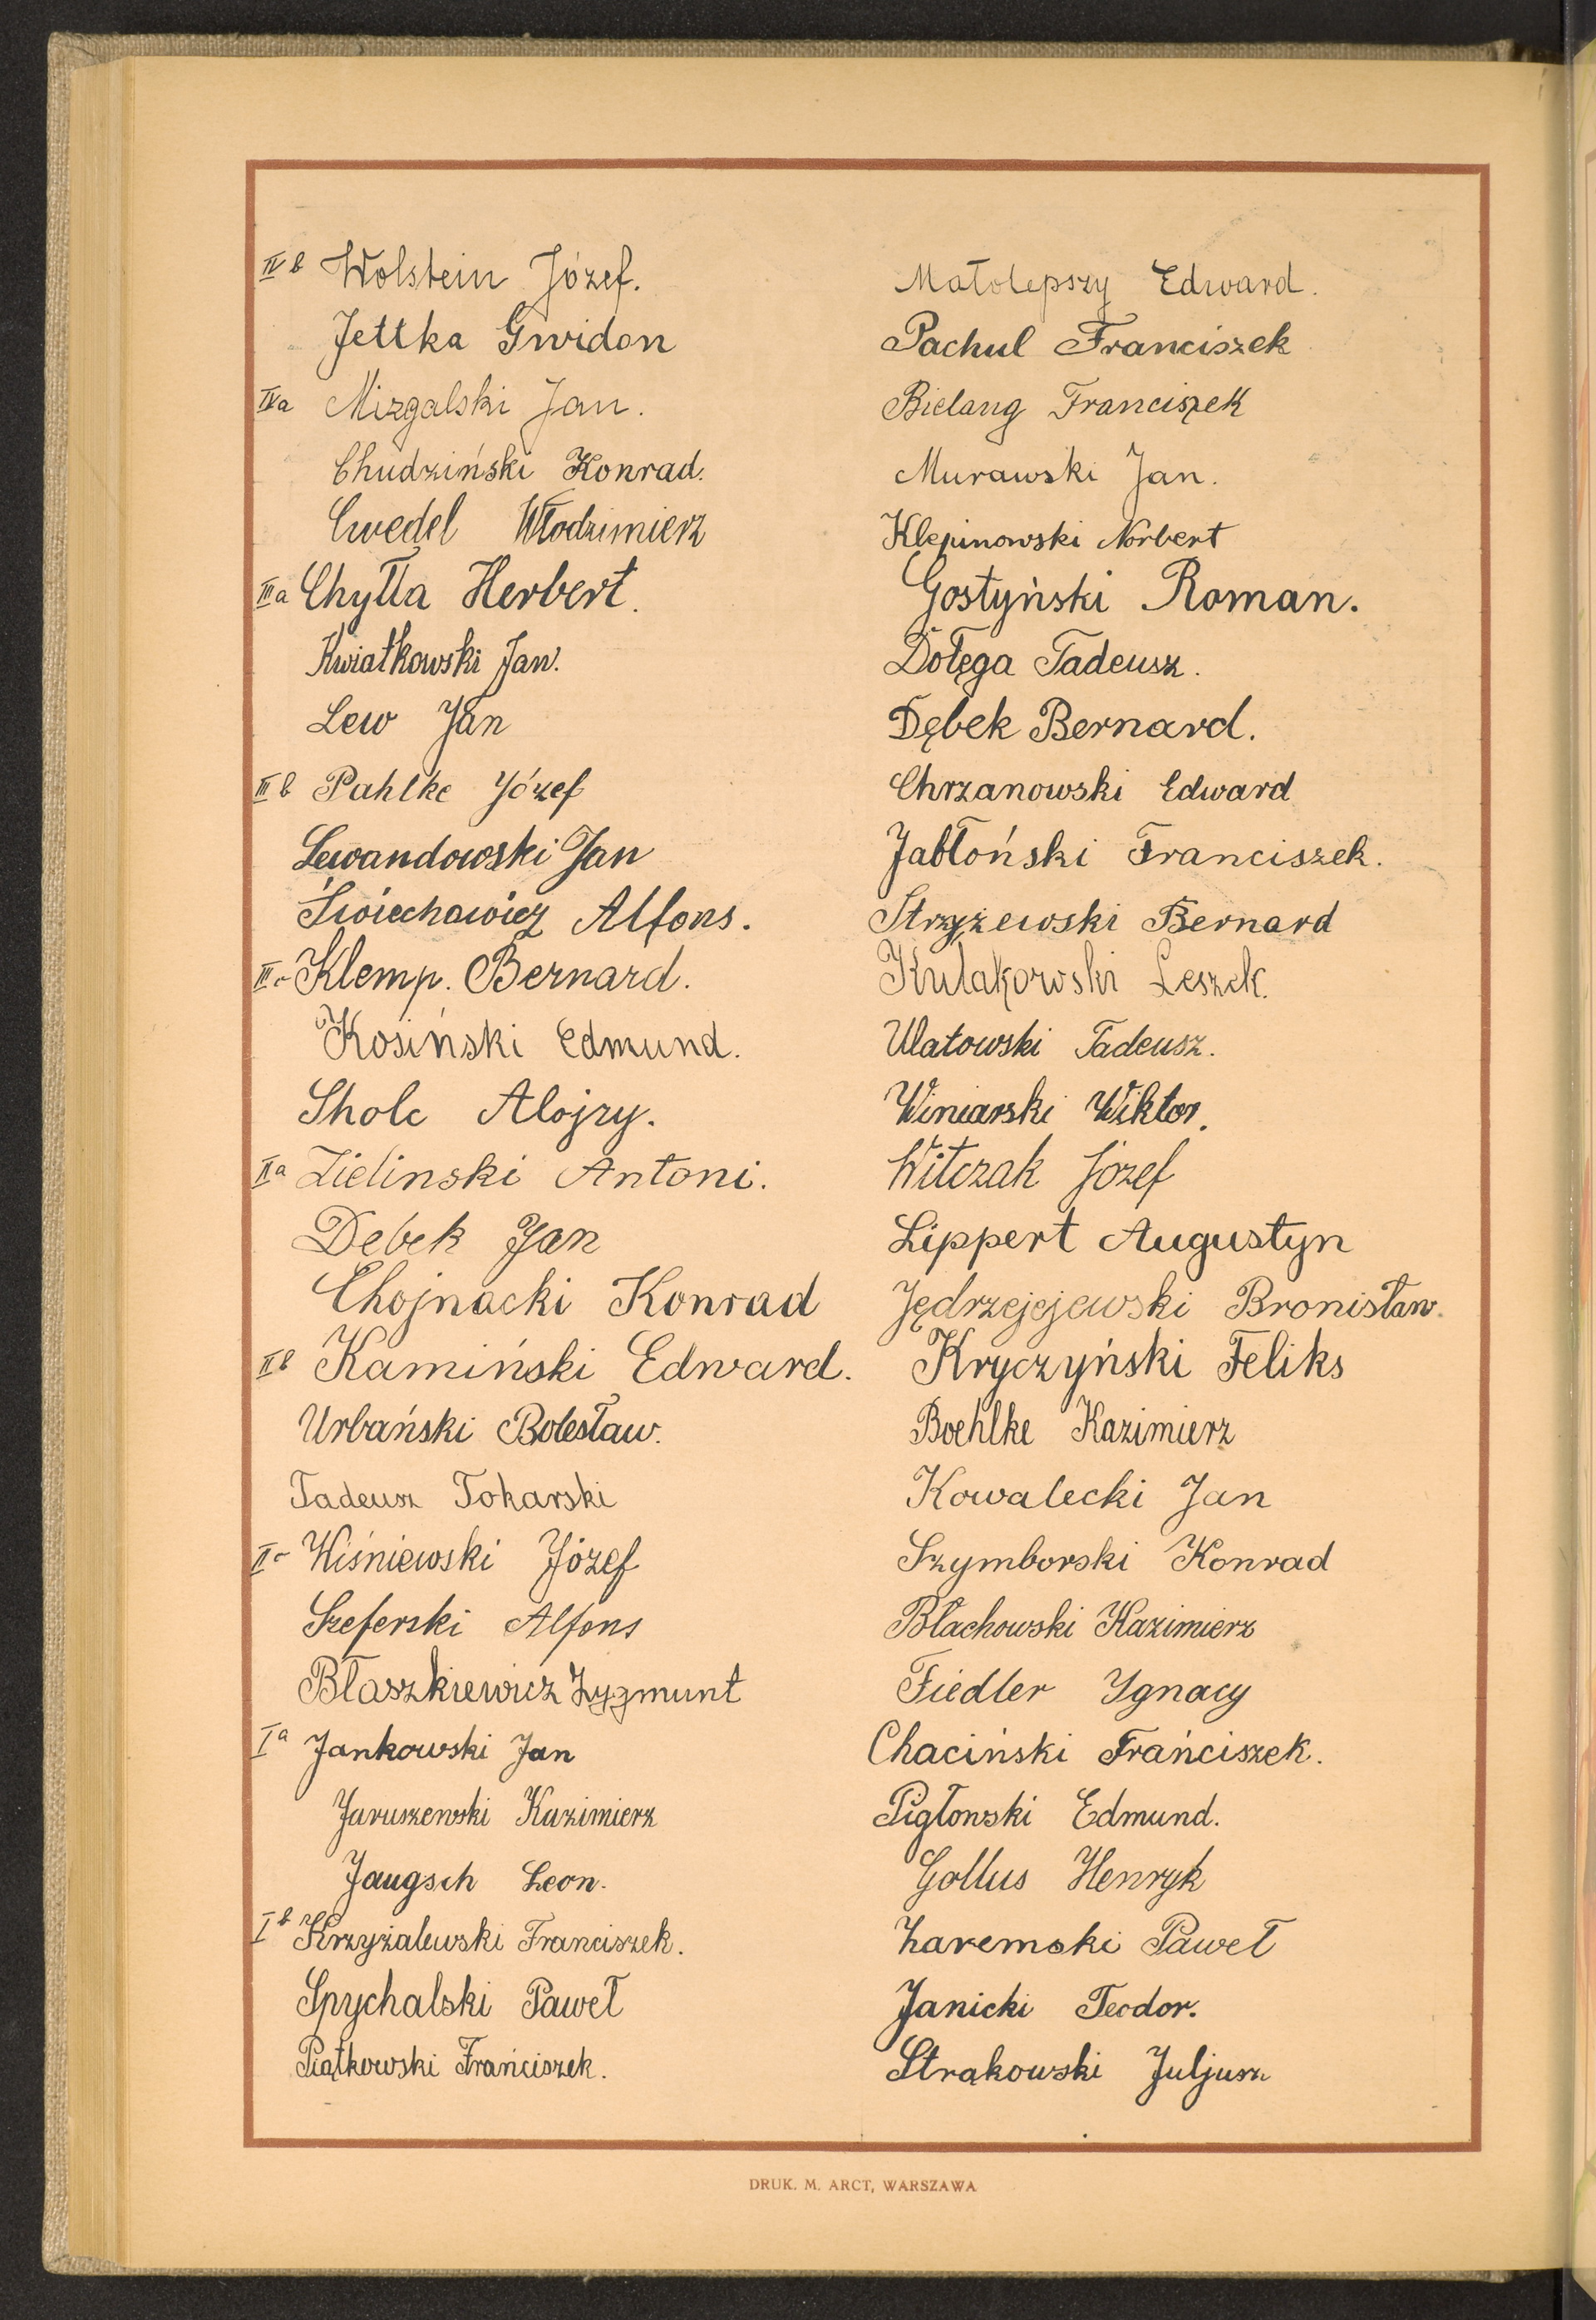 IVb Wolstein Józef.
Jettka Gwidon
IVa Mizgalski Jan.
Chudziński Konrad.
Cwedel Włodzimierz
IIIa Chyłła Herbert.
Kwiatkowski Jan.
Lew Jan
IIIb Pahlke Józef
Lewandowski Jan
Świechowicz Alfons.
IIIc Klemp. Bernard.
Kosiński Edmund.
Sholc Alojzy.
IIa Zielinski Antoni.
Debek Jan
Chojnacki Konrad
IIb Kamiński Edward.
Urbański Bolesław.
Tadeusz Tokarski
IIc Wiśniewski Józef
Szeferski Alfons
Błaszkiewicz Zygmunt
Ia Jankowski Jan
Jaruszewski Kazimierz
Jaugsch Leon.
Ib Krzyżalewski Franciszek.
Spychalski Paweł
Piątkowski Franciszek.
Małolepszy Edward.
Pachul Franciszek
Bielang Franciszek
Murawski Jan.
Klepinowski Norbert
Gostyński Roman.
Dołęga Tadeusz.
Dębek Bernard.
Chrzanowski Edward
Jabłoński Franciszek.
Strzyżewski Bernard
Kułakowski Leszek.
Ulatowski Tadeusz.
Winiarski Wiktor.
Witczak Józef
Lippert Augustyn
Jędrzejejewski Bronisław.
Kryczyński Feliks
Boehlke Kazimierz
Kowalecki Jan
Szymborski Konrad
Błachowski Kazimierz
Fiedler Ygnacy
Chaciński Franciszek.
Pigłowski Edmund.
Gollus Henryk
Zaremski Paweł
Janicki Teodor.
Strakowski Juljusz
DRUK. M. ARCT, WARSZAWA